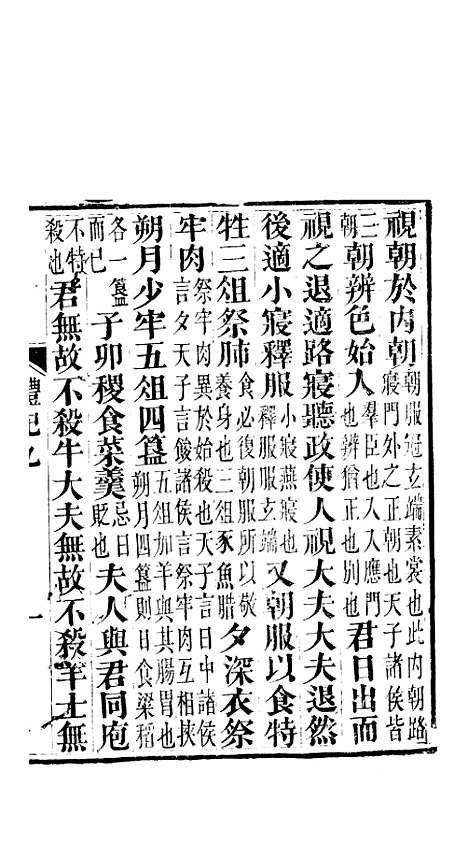 視朝於內朝朝服冠玄端素裳也此內朝路寢門外之正朝也天子諸侯皆
三朝辨色始入羣臣也入入應門也辨猶正也別也君日出而
視之退適路寢聽政使人視大夫大夫退然
後適小寢釋服小寢燕寢也釋服服玄端又朝服以食特
牲三俎祭肺食必復朝服所以敬養身也三俎豕魚腊夕深衣祭
牢肉祭牢肉異於始殺也天子言日中諸侯言夕天子言餕諸侯言祭牢肉互相挾
朔月少牢五俎四簋五俎加羊與其腸胃也朔月四簋則日食粱稻
各一簋而已子卯稷食菜羹忌日貶也夫人與君同庖
不特殺也君無故不殺牛大夫無故不殺羊士無
禮記九
一